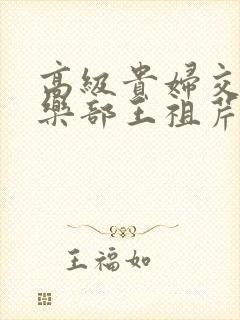 高級貴婦交
樂部王祖芹
王福如